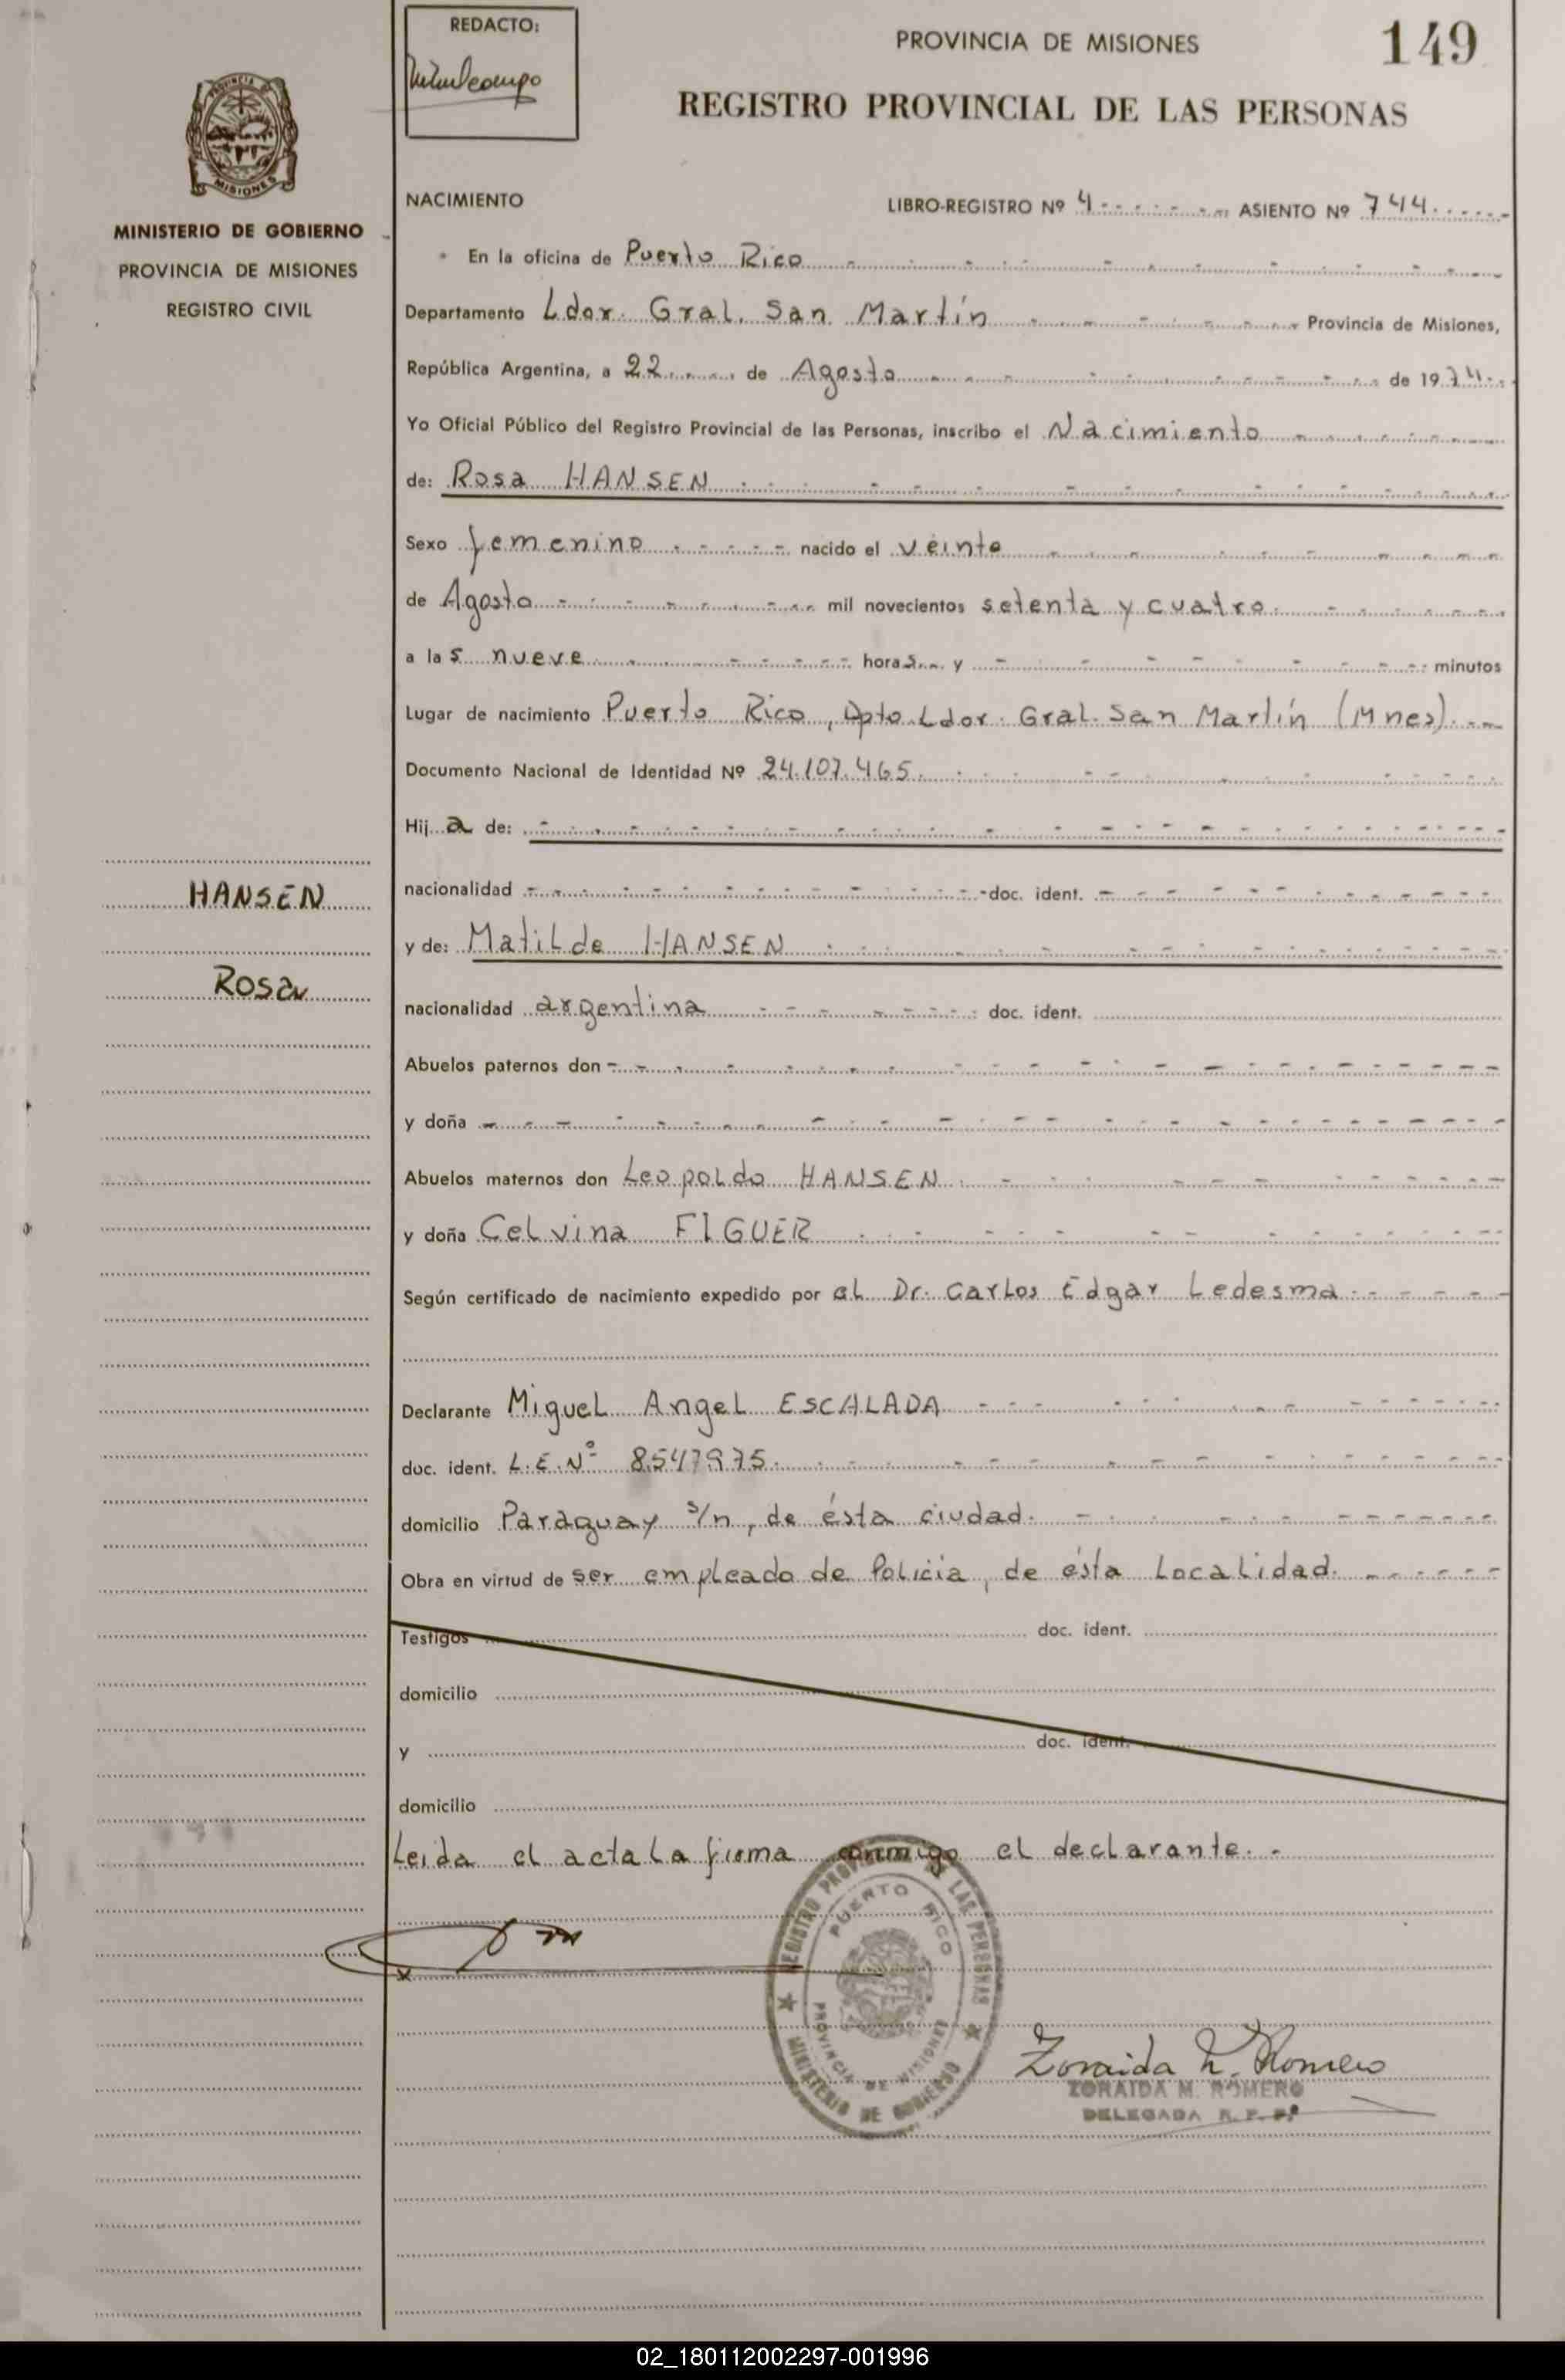 REDACTO:
PROVINCIA DE MISIONES
149
REGISTRO PROVINCIAL DE LAS PERSONAS
MISIONES
MINISTERIO DE GOBIERNO
PROVINCIA DE MISIONES
REGISTRO CIVIL
NACIMIENTO
LIBRO-REGISTRO Nº 4 ASIENTO Nº 744
En la oficina de Puerto Rico
Departamento Ldor. Gral. San Martín Provincia de Misiones,
República Argentina, a 22 de Agosto de 1974
Yo Oficial Público del Registro Provincial de las Personas, inscribo el Nacimiento
de: Rosa HANSEN
Sexo femenino nacido el veinte
de Agosto mil novecientos setenta y cuatro
a las nueve horas y minutos
Lugar de nacimiento Puerto Rico, Dpto. Ldor. Gral. San Martín (Mnes).
Documento Nacional de Identidad Nº 24.107.465.
Hija de:
HANSEN
Rosa
nacionalidad doc. ident.
y de: Matilde HANSEN
nacionalidad argentina doc. ident.
Abuelos paternos don
y doña
Abuelos maternos don Leopoldo HANSEN
y doña Celvina FIGUER
Según certificado de nacimiento expedido por el Dr. Carlos Edgar Ledesma
Declarante Miguel Angel ESCALADA
doc. ident. L.E.Nº 8547975.
domicilio Paraguay s/n, de ésta ciudad.
Obra en virtud de ser empleado de Policia, de ésta Localidad.
Testigos doc. ident.
domicilio
y doc. ident.
domicilio
Leida el acta la firma conmigo el declarante.
REGISTRO PROVINCIAL DE LAS PERSONAS
PUERTO RICO
PROVINCIA DE MISIONES
MINISTERIO DE GOBIERNO
Zoraida M. Romero
ZORAIDA M. ROMERO
DELEGADA R. P. P.
02_180112002297-001996